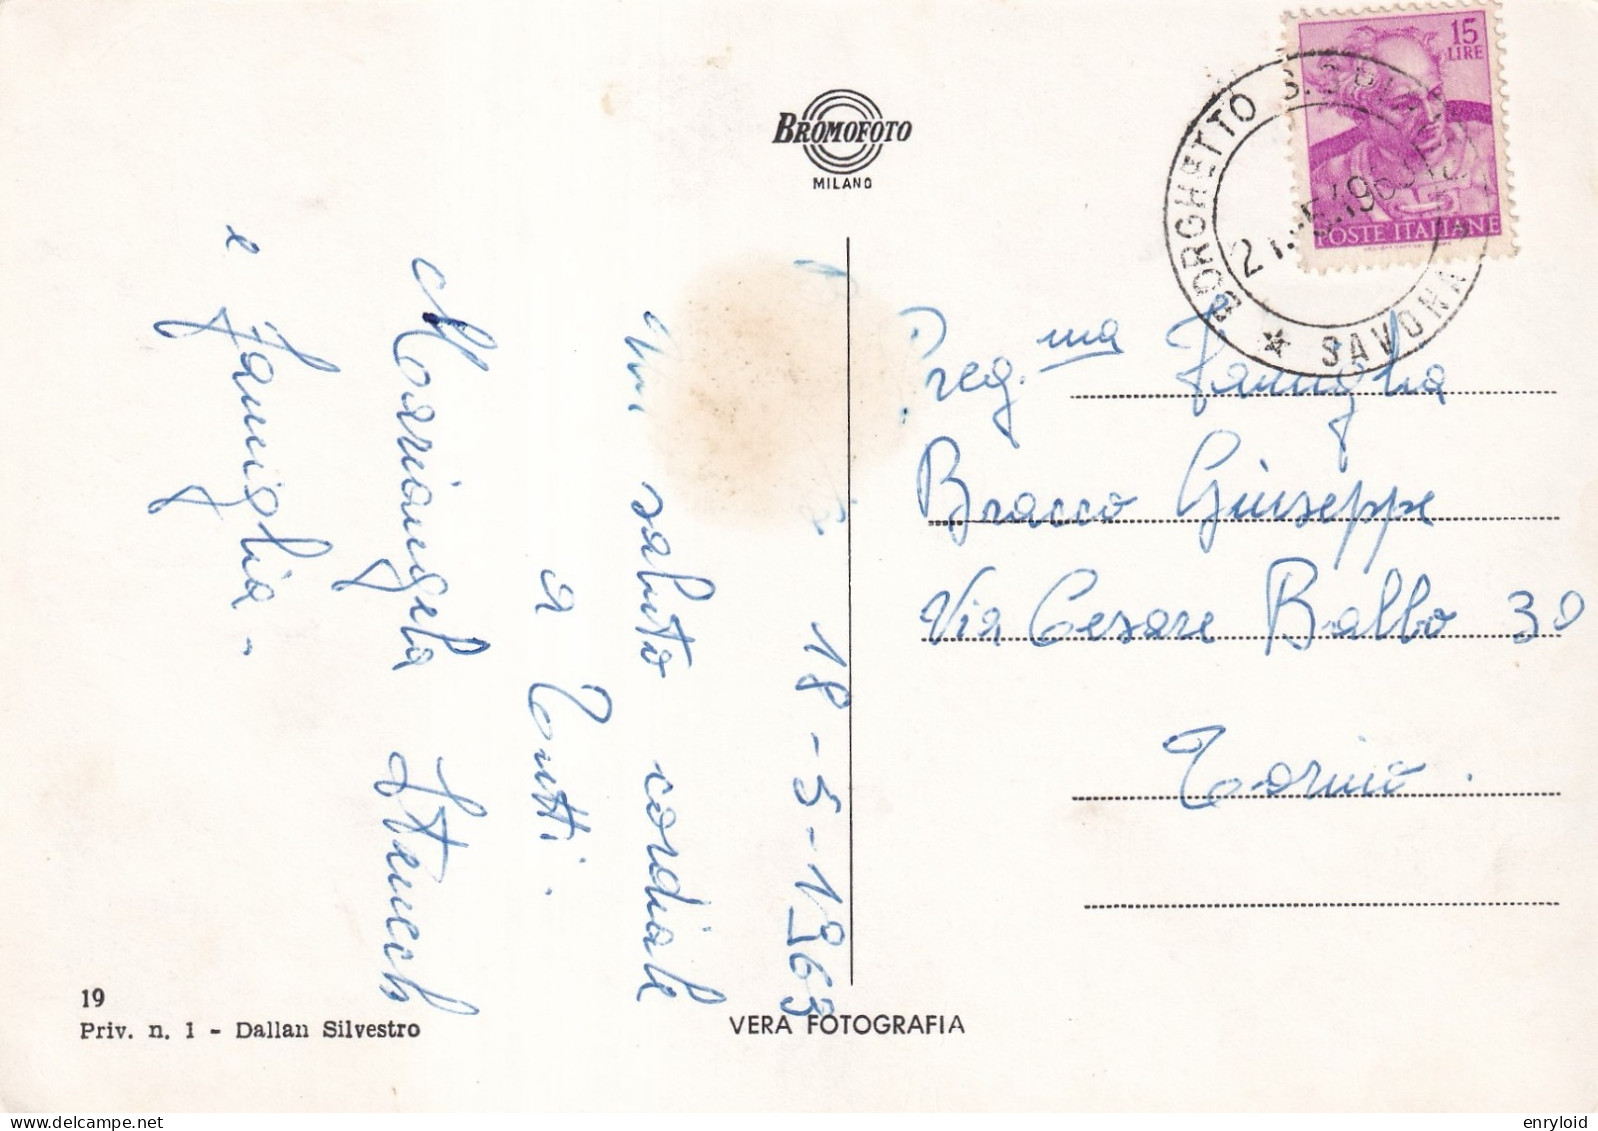 BROMOFOTO
MILANO
15
LIRE
POSTE ITALIANE
BORGHETTO S. SPIRITO
SAVONA
18-5-1963
Un saluto cordiale
a Tutti.
Mariangela
e famiglia.
Preg.ma famiglia
Bracco Giuseppe
Via Cesare Balbo 30
Torino.
19
Priv. n. 1 - Dallan Silvestro
VERA FOTOGRAFIA
enryloid